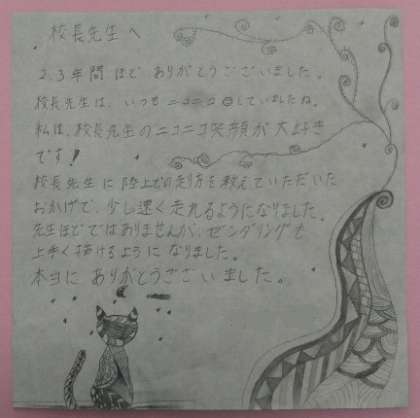 校長先生へ
2、3年間ほど ありがとうございました。
校長先生は、いつもニコニコ☺していましたね。
私は、校長先生のニコニコ笑顔が大好き
です!
校長先生に陸上での走り方を教えていただいた
おかげで、少し速く走れるようになりました。
先生ほどではありませんが、ゼンタングルも
上手く描けるように なりました。
本当に ありがとうございました。